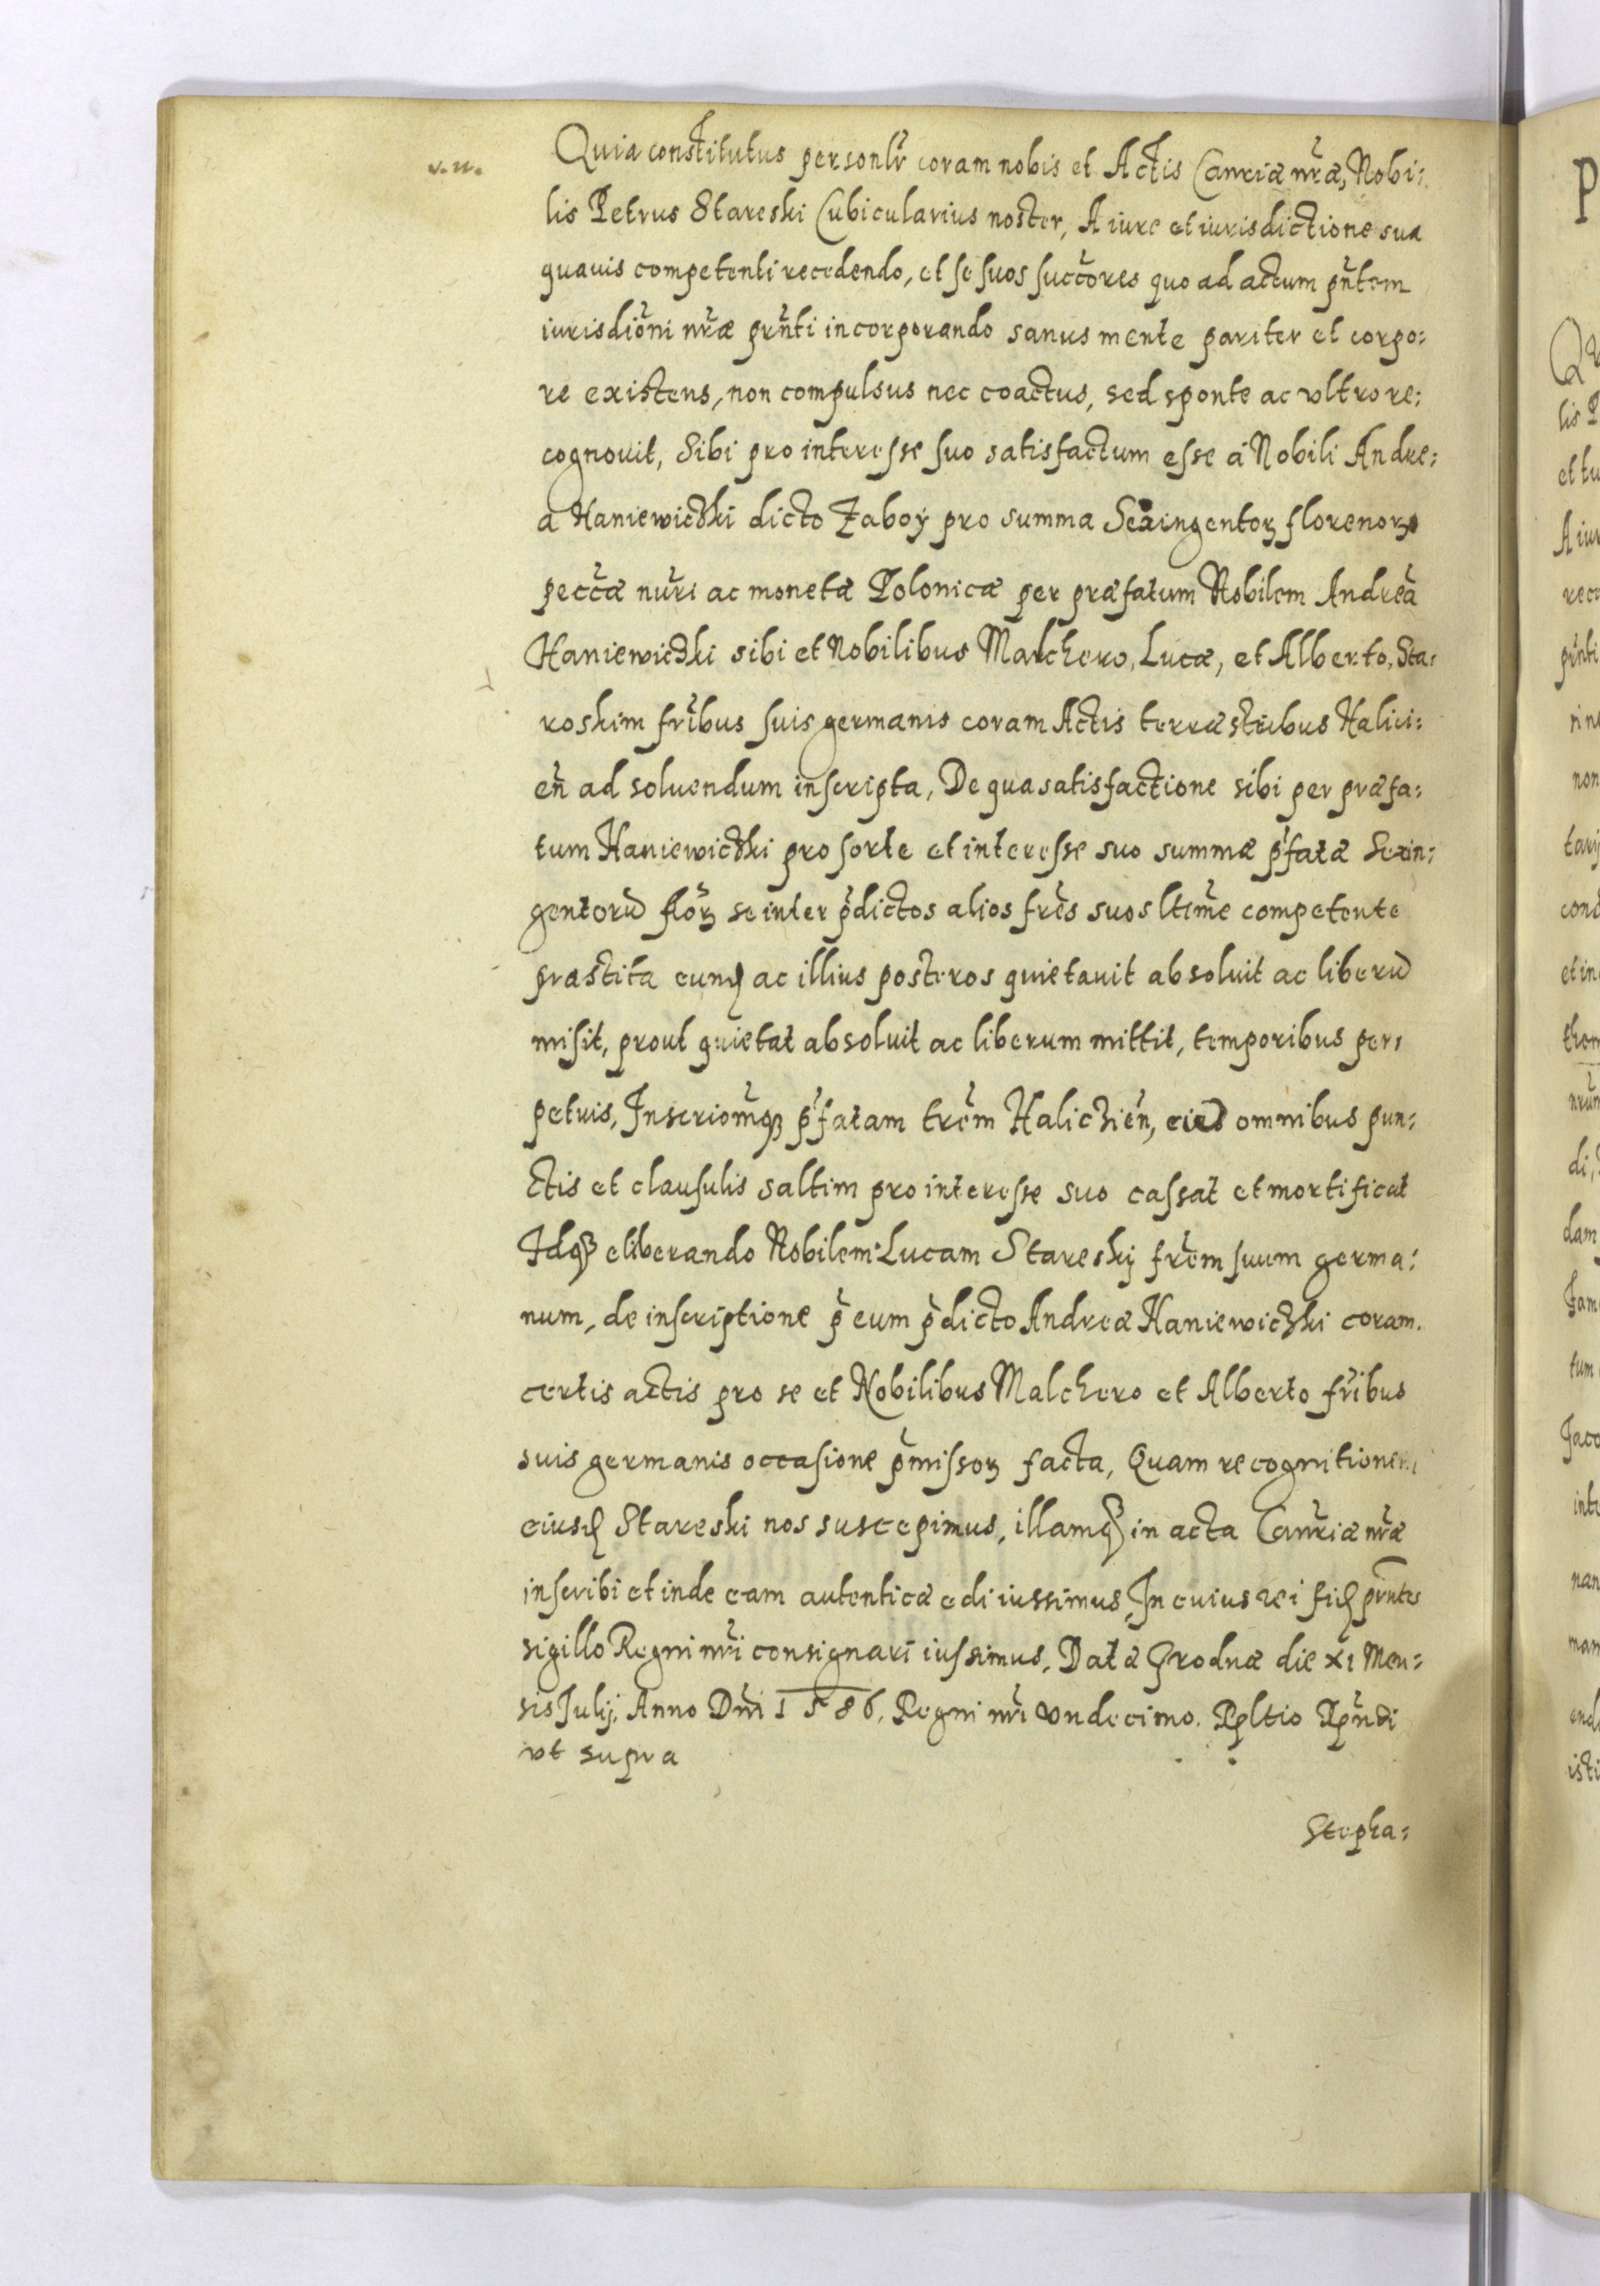 v. n.
Quia constitutus personlr̃ coram nobis et Actis Canrĩæ nr̃æ, Nobi:
lis Petrus Stareski Cubicularius noster, A iure et iurisdictione sua
quauis competenti recedendo, et se suos succ̃ores quo ad actum pñtem
iurisdiõni nr̃æ prñti incorporando sanus mente pariter et corpo:
re existens, non compulsus nec coactus, sed sponte ac vltro re:
cognouit, Sibi pro interesse suo satisfactum esse á Nobili Andre:
a Haniewiczki dicto Zaboÿ pro summa Sexingentoꝝ florenoꝝ
pecc̃æ nũri ac monetæ Polonicæ per præfatum Nobilem Andreã
Haniewiczki sibi et Nobilibus Malchero, Lucæ, et Alberto, Sta:
roskim frĩbus suis germanis coram Actis terræstribus Halici:
eñ ad soluendum inscripta, De qua satisfactione sibi per præfa:
tum Haniewiczki pro sorte et interesse suo summæ p̃fatæ Sexin:
gentorũ flõꝝ se inter p̃dictos alios frẽs suos ltĩme competente
præstita eunꝗ ac illius posteros quietauit absoluit ac liberũ
misit, prout quietat absoluit ac liberum mittit, temporibus per:
petuis, Inscriõmqꝫ p̃fatam trẽm Haliczień, eius omnibus pun:
ctis et clausulis saltim pro interesse suo cassat et mortificat
Idqꝫ eliberando Nobilem Lucam Stareskij frẽm suum germa:
num, de inscriptione p̃ eum p̃dicto Andreæ Haniewiczki coram
certis actis pro se et Nobilibus Malchero et Alberto frĩbus
suis germanis occasione p̃missoꝝ facta, Quam recognitionem
eiusꝗ Stareski nos suscepimus, illamqꝫ in acta Canrĩæ nr̃æ
inscribi et inde eam autenticæ edi iussimus, In cuius rei fiꝗ prñtes
sigillo Regni nrĩ consignari iussimus, Datæ Grodnæ die xi Men:
sis Julij, Anno Dñi 1586, Regni nrĩ vndecimo. Rp̃ltio Rp̃ndi
vt supra
Stepha: